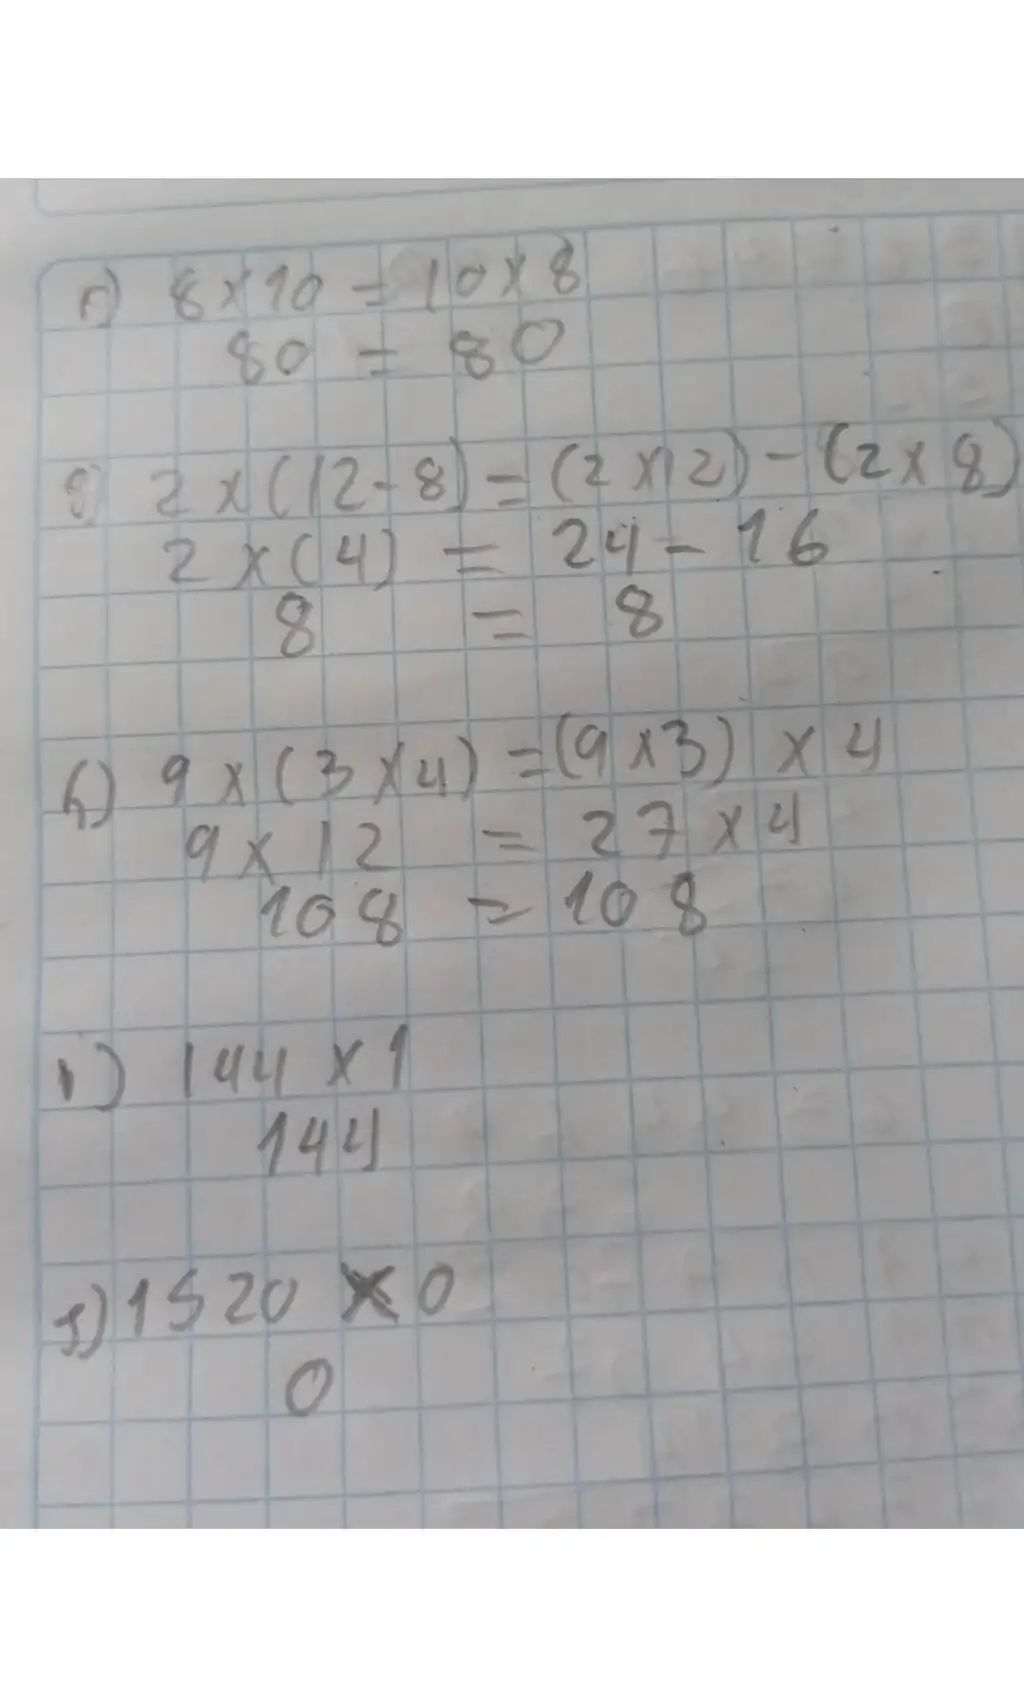 f) 8 x 10 = 10 x 8
80 = 80
g) 2 x (12 - 8) = (2 x 12) - (2 x 8)
2 x (4) = 24 - 16
8 = 8
h) 9 x (3 x 4) = (9 x 3) x 4
9 x 12 = 27 x 4
108 = 108
i) 144 x 1
144
j) 1520 x 0
0